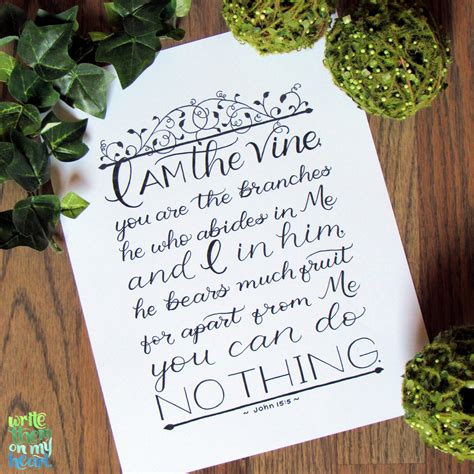 I AM the Vine,
you are the branches
he who abides in Me
and I in him,
he bears much fruit
for apart from Me
you can do
NOTHING.
~ John 15:5 ~
write
them
on my
heart